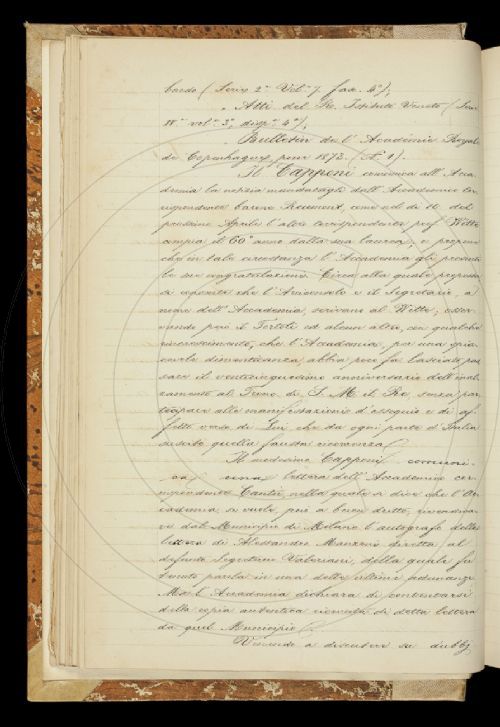 bardo (Serie 2ª Vol. 7 fasc. 4º);
" Atti del R. Istituto Veneto (Serie
IVª vol. 3º, disp. 4ª);
" Bulletin de l'Académie Royale
de Copenhague pour 1873. (N. 1).
Il Capponi comunica all'Acca-
demia la notizia mandatagli dall'Accademico cor-
rispondente barone Reumont, come nel dì del
prossimo Aprile l'altro corrispondente prof. Witte
compia il 60º anno dalla sua laurea; e propone
che in tale circostanza l'Accademia gli presenti
le sue congratulazioni. Circa alla quale proposta
si consente che l'Arciconsolo e il Segretario, a
nome dell'Accademia, scrivano al Witte; osser-
vando però il Tortoli ed alcun altro, con qualche
rincrescimento, che l'Accademia, per una spia-
cevole dimenticanza, abbia poco fa lasciato pas-
sare il venticinquesimo anniversario dell'inal-
zamento al Trono di S. M. il Re, senza par-
tecipare alle manifestazioni d'ossequio e di af-
fetto verso di Lui che da ogni parte d'Italia
suscitò quella fausta ricorrenza.
Il medesimo Capponi comuni-
ca una lettera dell'Accademico cor-
rispondente Cantù, nella quale si dice che l'Ac-
cademia, se vuole, può a buon dritto, rivendica-
re dal Municipio di Milano l'autografo della
lettera di Alessandro Manzoni diretta al
defunto Segretario Valeriani, della quale fu
tenuto parola in una delle ultime adunanze.
Ma l'Accademia dichiara di contentarsi
della copia autentica ricevuta di detta lettera
da quel Municipio.
Venendo a discutere su dubbj